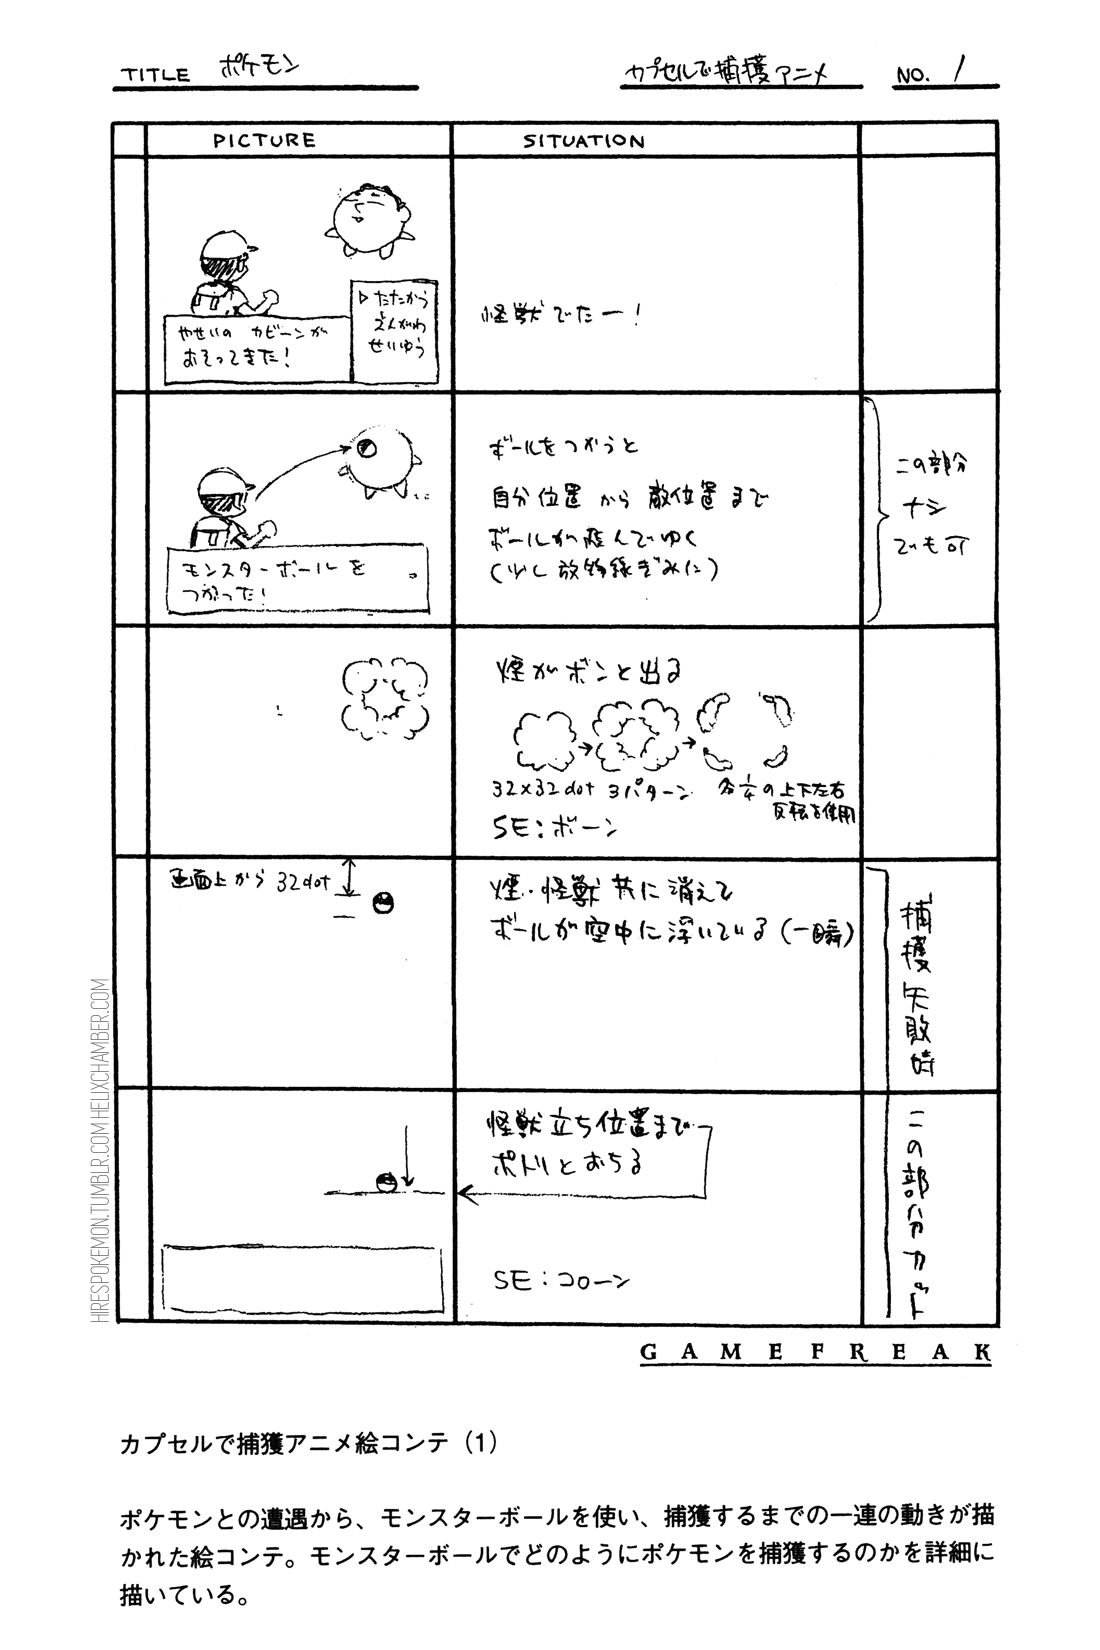 TITLE ポケモン
カプセルで捕獲アニメ
NO. 1
PICTURE
SITUATION
やせいの カビーンが
おそってきた!
▷たたかう
せいゆう
怪獣でたー!
モンスターボールを
つかった!
ボールをつかうと
自分位置から 敵位置まで
ボールが飛んでゆく
(少し放物線ぎみに)
この部分
ナシ
でも可
煙がボンと出る
32×32dot 3パターン
各々の上下左右
反転を使用
SE:ボーン
画面上から 32dot
煙・怪獣共に消えて
ボールが空中に浮いている(一瞬)
怪獣立ち位置まで
ポトリとおちる
SE:コローン
捕獲失敗時
この部分カット
GAMEFREAK
HIRESPOKEMON.TUMBLR.COM HELIXCHAMBER.COM
カプセルで捕獲アニメ絵コンテ(1)
ポケモンとの遭遇から、モンスターボールを使い、捕獲するまでの一連の動きが描
かれた絵コンテ。モンスターボールでどのようにポケモンを捕獲するのかを詳細に
描いている。